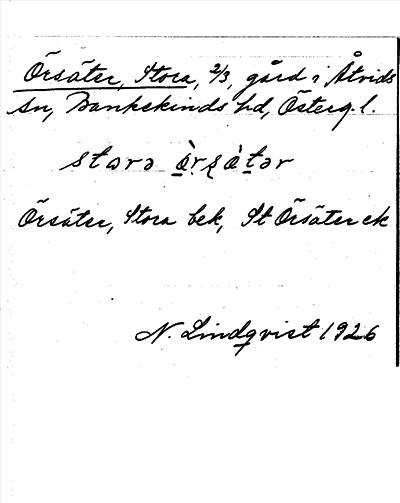 Örsäter, Stora, 2/3, gård i Åtvids
sn, Bankekinds hd, Österg. l.
stora ö̀rsä̀tər
Örsäter, Stora bek, St Örsäter ek
N. Lindqvist 1926